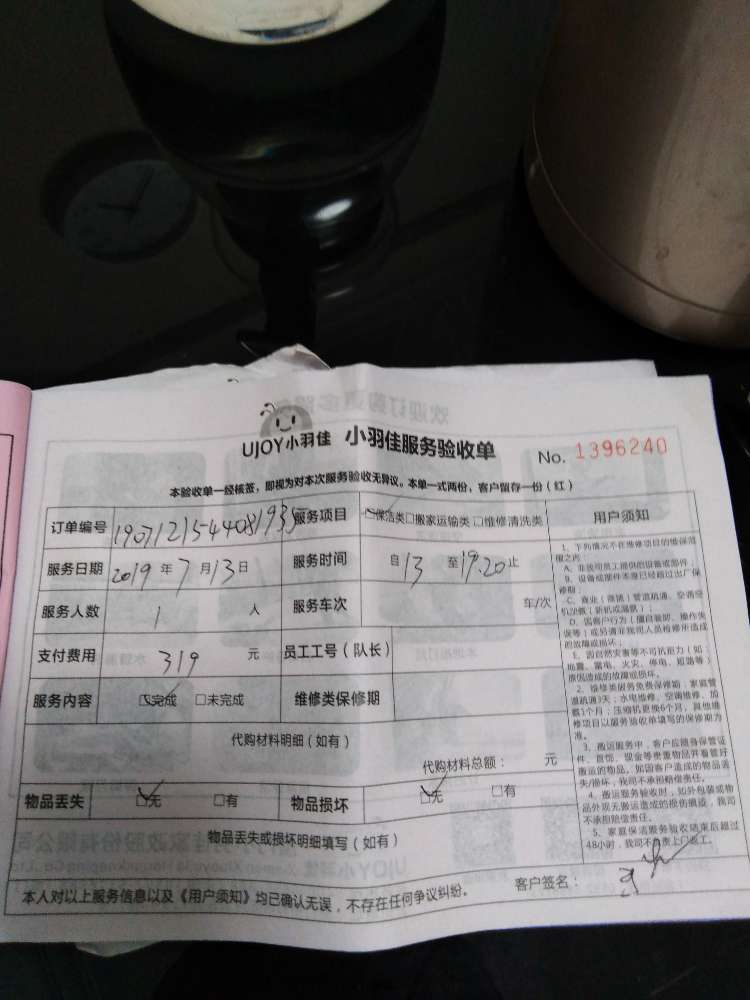 UJOY小羽佳 小羽佳服务验收单 No. 1396240
本验收单一经核签，即视为对本次服务验收无异议。本单一式两份，客户留存一份（红）
订单编号 190712154408193 服务项目 ☑保洁类□搬家运输类□维修清洗类 用户须知
服务日期 2019 年 7 月 13 日 服务时间 自 13 至 19.20 止
服务人数 1 人 服务车次 车/次
支付费用 319 元 员工工号（队长）
服务内容 ☑完成 □未完成 维修类保修期
代购材料明细（如有）
代购材料总额： 元
物品丢失 ☑无 □有 物品损坏 ☑无 □有
物品丢失或损坏明细填写（如有）
本人对以上服务信息以及《用户须知》均已确认无误，不存在任何争议纠纷。 客户签名：
1、下列情况不在维修项目的维保范
围之内：
A、非我司员工提供的设备或部件
B、设备或部件本身已经超过出厂保
修期；
C、商业（商铺）管道疏通、空调空
D、因客户行为：擅自装卸、操作失
误等；或另请非我司人员检修所造成
的故障或损坏；
E、因自然灾害等不可抗力（如：
地震、雷电、火灾、停电、短路等）
原因造成的故障或损坏。
2、维修类服务免费保修期：家庭管
道疏通3天；水电维修、空调维修、加
氟1个月；压缩机更换6个月，其他维
修项目以服务验收单填写的保修期为
准。
3、搬运服务中，客户应随身保管证
件、首饰、现金等贵重物品并看管好
搬运的物品，如因客户造成的物品丢
失/损坏，我司不承担赔偿责任。
4、搬运服务验收时，如外包装或物
品外观无搬运造成的损伤痕迹，我司
不承担赔偿责任。
5、家庭保洁服务验收结束后超过
48小时，我司不负责上门返工。